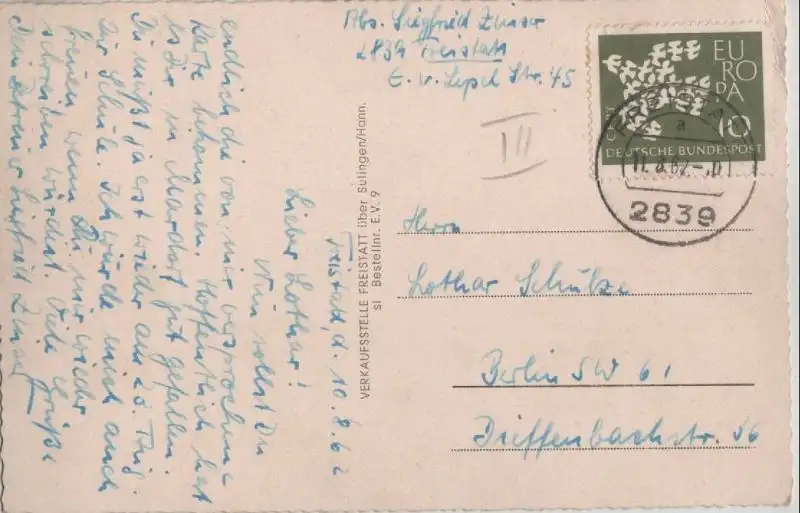 Abs. Siegfried Zinser
2839 Freistatt
E. v. Lepel Str. 45
III
EU
RO
PA
CEPT
10
DEUTSCHE BUNDESPOST
a
11.8.62
2839
Freistadt, d. 10.8.62
Lieber Lothar!
Nun sollst Du
endlich die von mir versprochene
Karte bekommen. Hoffentlich hat
es Dir in Mardorf gut gefallen.
Du mußt ja erst wieder am 23. Aug.
zur Schule. Ich würde mich auch
freuen wenn Du mir wieder
schreiben würdest. Viele Grüße
Dein Siegfried Zinser
VERKAUFSSTELLE FREISTATT über Sulingen/Hann.
sl Bestellnr. E.V. 9
Herrn
Lothar Schulze
Berlin SW 61
Dieffenbachstr. 36